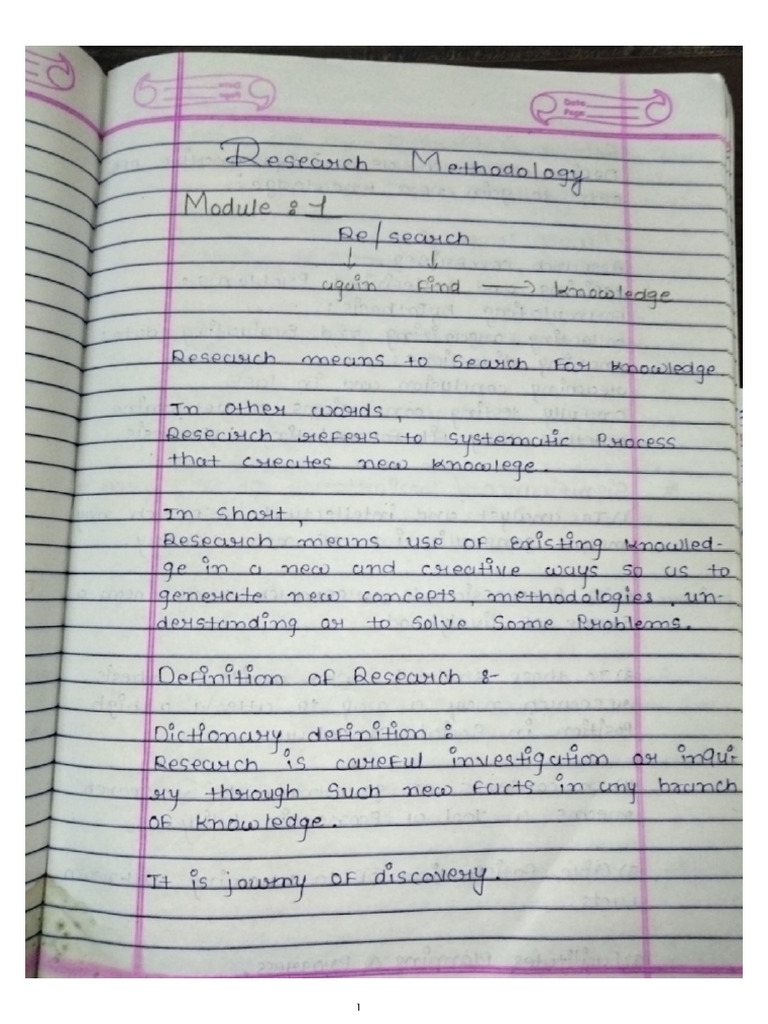 Date
Page
Research Methodology
Module : 1
Re/search
↓ ↓
again find → knowledge
Research means to search for knowledge
In other words,
Research refers to systematic process
that creates new knowlege.
In short,
Research means use of existing knowled-
ge in a new and creative ways so as to
generate new concepts, methodologies, un-
derstanding or to solve some problems.
Definition of Research :-
Dictionary definition :
Research is careful investigation or inqui-
ry through such new facts in any branch
of knowledge.
It is journy of discovery.
1